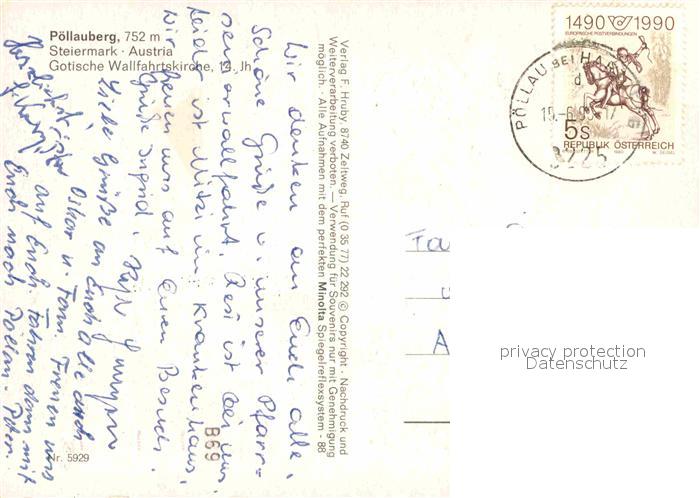 Pöllauberg, 752 m
Steiermark · Austria
Gotische Wallfahrtskirche, 14. Jh.
Wir denken an Euch alle,
Schöne Grüße v. unserer Pfarr-
wallfahrt. Resi ist bei uns.
Leider ist Mitzi im Krankenhaus,
Wir freuen uns auf Euren Besuch.
Grüße Ingrid,
Liebe Grüße an Euch alle auch
Oskar u. Fam. Freuen uns
auf Euch. Fahren dann mit
Euch nach
Verlag F. Hruby, 8740 Zeltweg, Ruf (0 35 77) 22 292 © Copyright · Nachdruck und
Weiterverarbeitung verboten. — Verwendung für Souvenirs nur mit Genehmigung
möglich. · Alle Aufnahmen mit dem perfekten Minolta Spiegelreflexsystem - 88
B69
Nr. 5929
1490 1990
EUROPÄISCHE POSTVERBINDUNGEN
5S
REPUBLIK ÖSTERREICH
PÖLLAU BEI HA
8225
Fa
A
privacy protection
Datenschutz